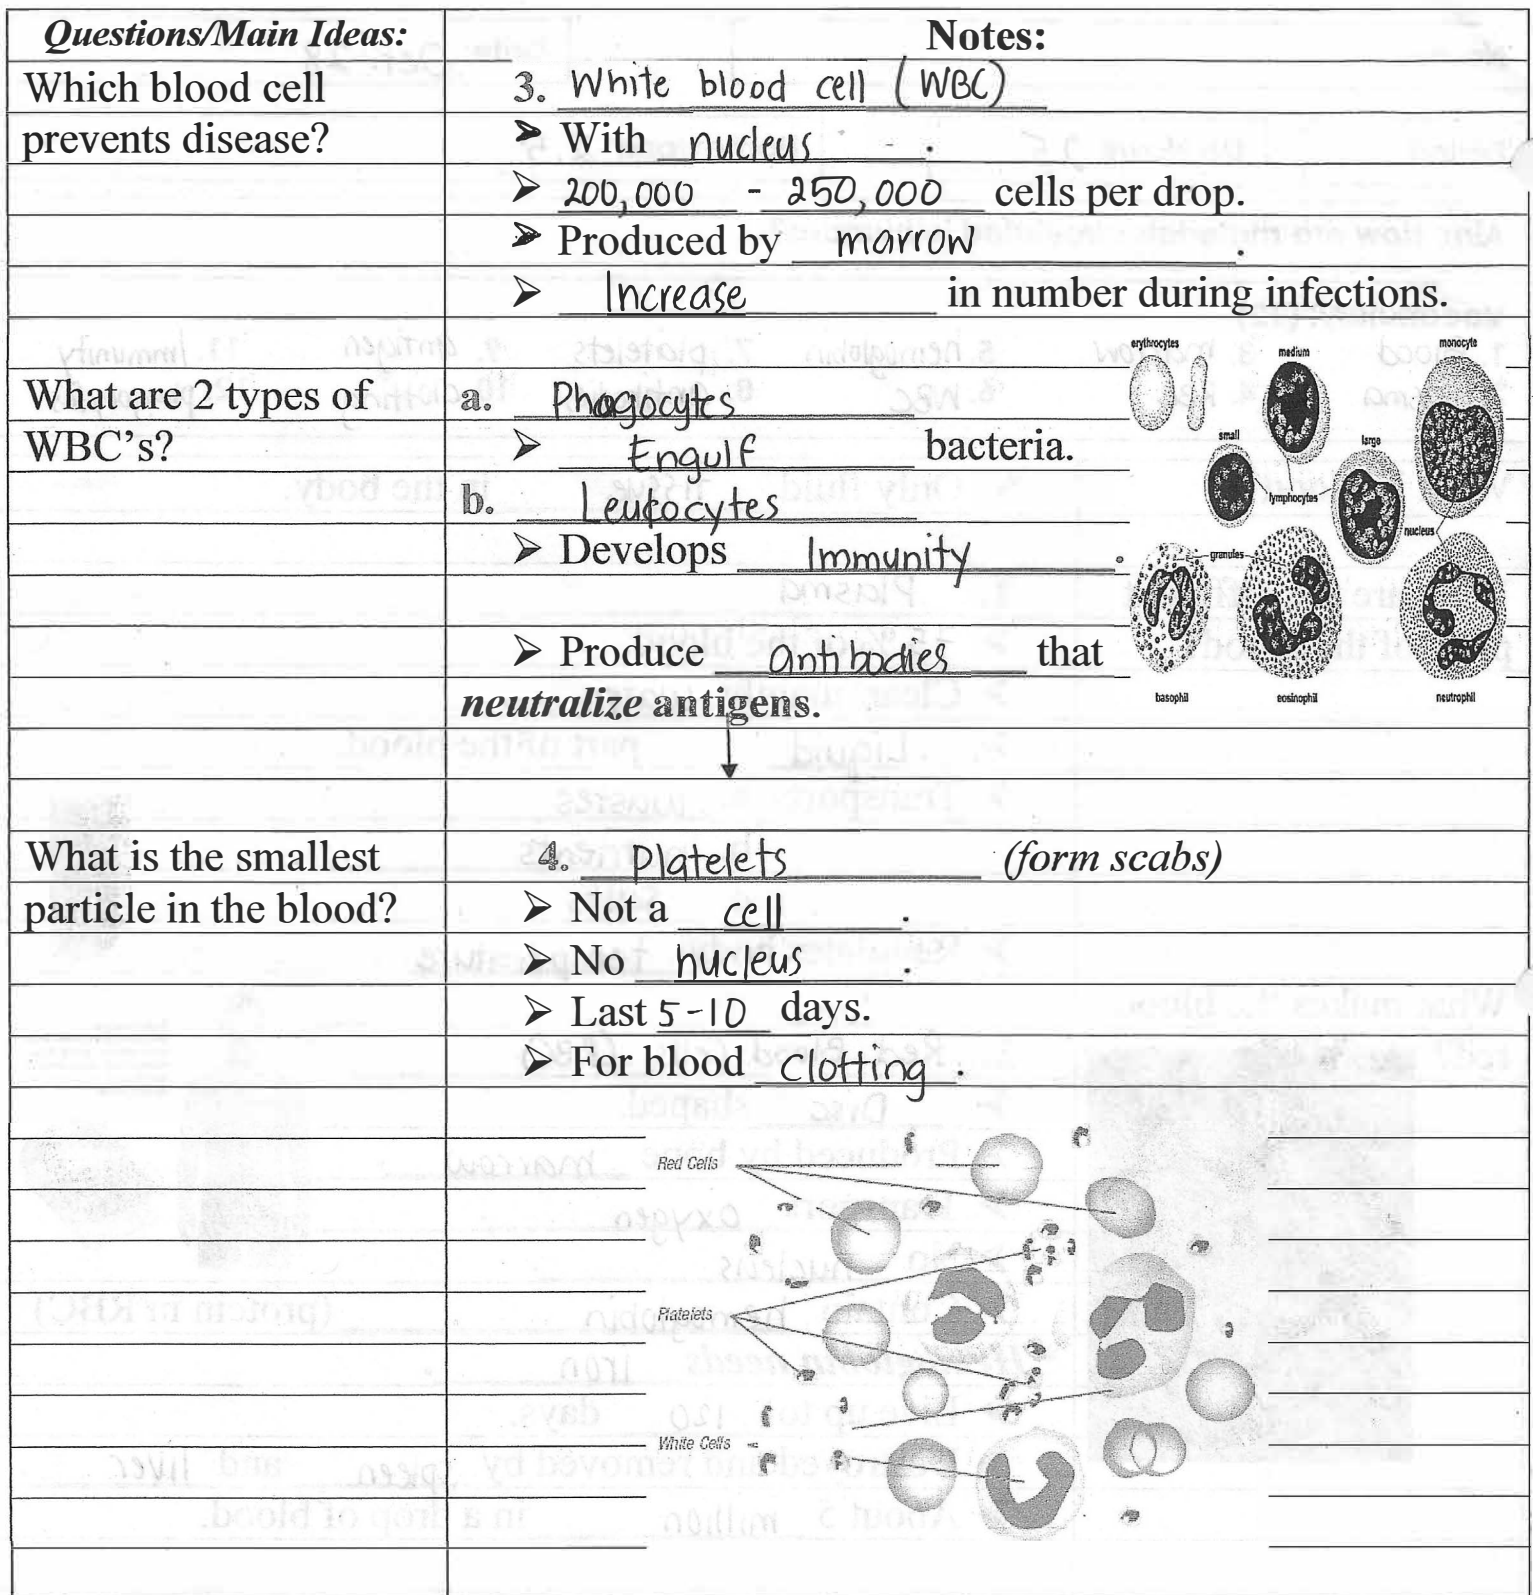 Questions/Main Ideas:
Notes:
Which blood cell
prevents disease?
3. White blood cell (WBC)
➤ With nucleus.
➤ 200,000 - 250,000 cells per drop.
➤ Produced by marrow.
➤ Increase in number during infections.
What are 2 types of
WBC's?
a. Phagocytes
➤ Engulf bacteria.
b. Leukocytes
➤ Develops Immunity.
➤ Produce antibodies that
neutralize antigens.
erythrocytes
medium
monocyte
small
large
lymphocytes
nucleus
granules
basophil
eosinophil
neutrophil
What is the smallest
particle in the blood?
4. Platelets (form scabs)
➤ Not a cell.
➤ No nucleus.
➤ Last 5-10 days.
➤ For blood clotting.
Red Cells
Platelets
White Cells